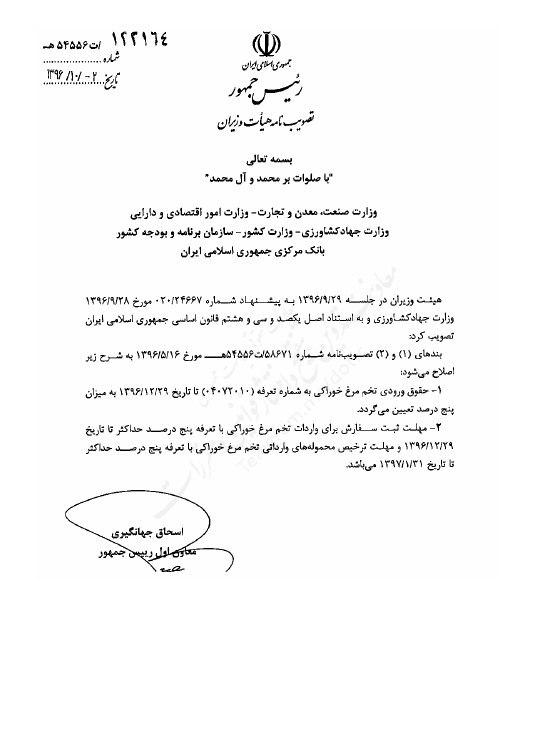 ۱۲۲۱۶۴/ت۵۴۵۵۶هـ
شماره
تاریخ ۱۳۹۶/۱۰/۰۲
جمهوری اسلامی ایران
رئیس جمهور
تصویب نامه هیأت وزیران
بسمه تعالی
"با صلوات بر محمد و آل محمد"
وزارت صنعت، معدن و تجارت- وزارت امور اقتصادی و دارایی
وزارت جهادکشاورزی- وزارت کشور- سازمان برنامه و بودجه کشور
بانک مرکزی جمهوری اسلامی ایران
هیئت وزیران در جلسه ۱۳۹۶/۹/۲۹ به پیشنهاد شماره ۰۲۰/۲۴۶۶۷ مورخ ۱۳۹۶/۹/۲۸
وزارت جهادکشاورزی و به استناد اصل یکصد و سی و هشتم قانون اساسی جمهوری اسلامی ایران
تصویب کرد:
بندهای (۱) و (۲) تصویب‌نامه شماره ۵۸۶۷۱/ت۵۴۵۵۶هـ مورخ ۱۳۹۶/۵/۱۶ به شرح زیر
اصلاح می‌شود:
۱- حقوق ورودی تخم مرغ خوراکی به شماره تعرفه (۰۴۰۷۲۰۱۰) تا تاریخ ۱۳۹۶/۱۲/۲۹ به میزان
پنج درصد تعیین می‌گردد.
۲- مهلت ثبت سفارش برای واردات تخم مرغ خوراکی با تعرفه پنج درصد حداکثر تا تاریخ
۱۳۹۶/۱۲/۲۹ و مهلت ترخیص محموله‌های وارداتی تخم مرغ خوراکی با تعرفه پنج درصد حداکثر
تا تاریخ ۱۳۹۷/۱/۳۱ می‌باشد.
اسحاق جهانگیری
معاون اول رییس جمهور